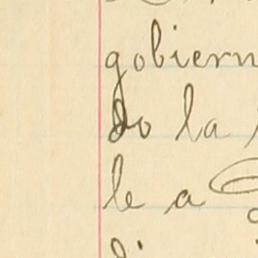 gobiern
do la
le a